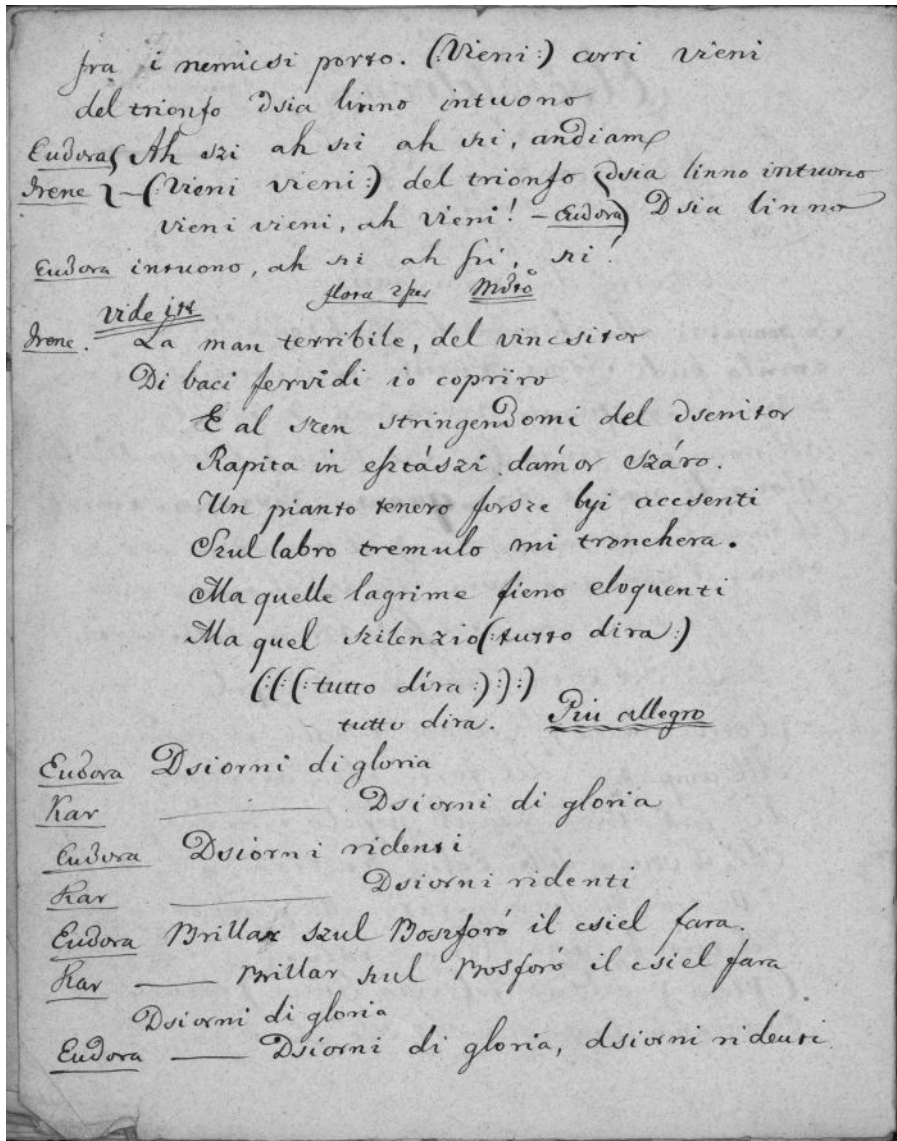 fra i nemicsi porto. (:Vieni:) corri vieni
del trionfo dsia linno intuono
Eudora Ah szi ah szi ah szi, andiam
Irene (:Vieni vieni:) del trionfo dsia linno intuono
vieni vieni, ah vieni! - Eudora Dsia linno
Eudora intuono, ah szi ah szi, szi!
vide itt flora Mdto
Irene. La man terribile, del vincsitor
Di baci fervidi io copriro
E al szen stringendomi del dsenitor
Rapita in esztászi dámor száro.
Un pianto tenero forsze byi accsenti
Szul labro tremulo mi tronchera.
Ma quelle lagrime fieno eloquenti
Ma quel szilenzio (:tutto dira:)
(:(:(:tutto dira:):):)
tutto dira. Piu allegro
Eudora Dsiorni di gloria
Kar Dsiorni di gloria
Eudora Dsiorni ridenti
Kar Dsiorni ridenti
Eudora Brillar szul Boszforó il csiel fara.
Kar Brillar szul Bosforó il csiel fara
Dsiorni di gloria
Eudora Dsiorni di gloria, dsiorni ridenti